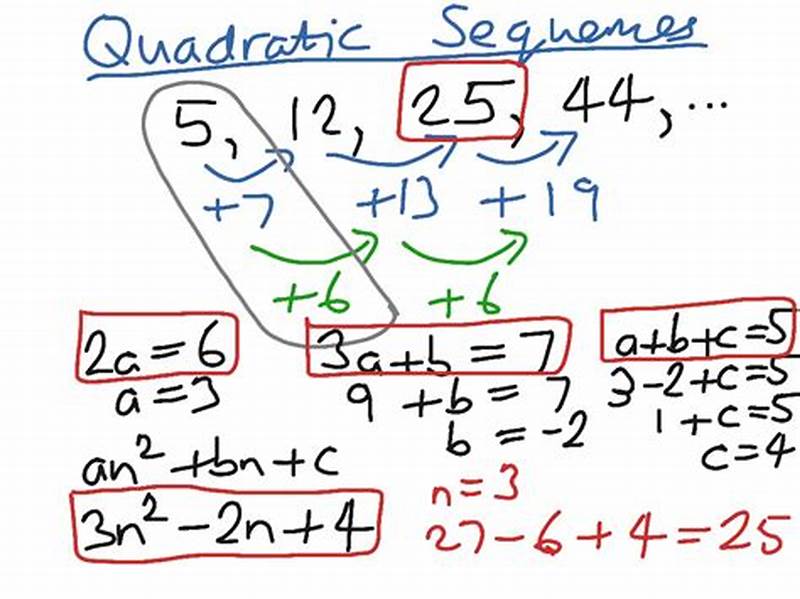 Quadratic Sequences
5, 12, 25, 44, ...
+7 +13 +19
+6 +6
2a = 6 3a+b = 7 a+b+c=5
a=3 9 +b = 7 3-2+c=5
b = -2 1+c=5
an²+bn+c c=4
n=3
3n²-2n+4 27-6+4=25